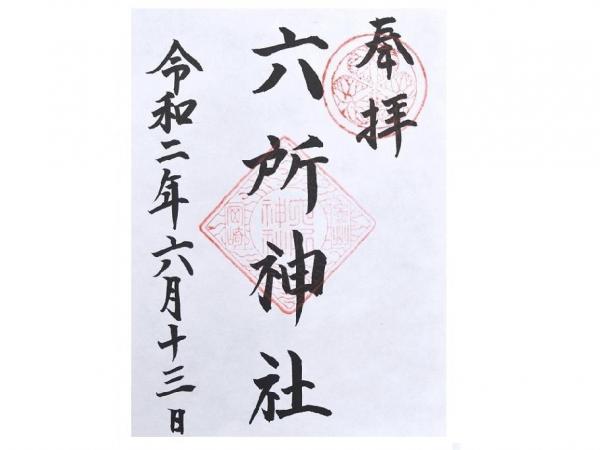 奉拝
六所神社
令和二年六月十三日
岡崎